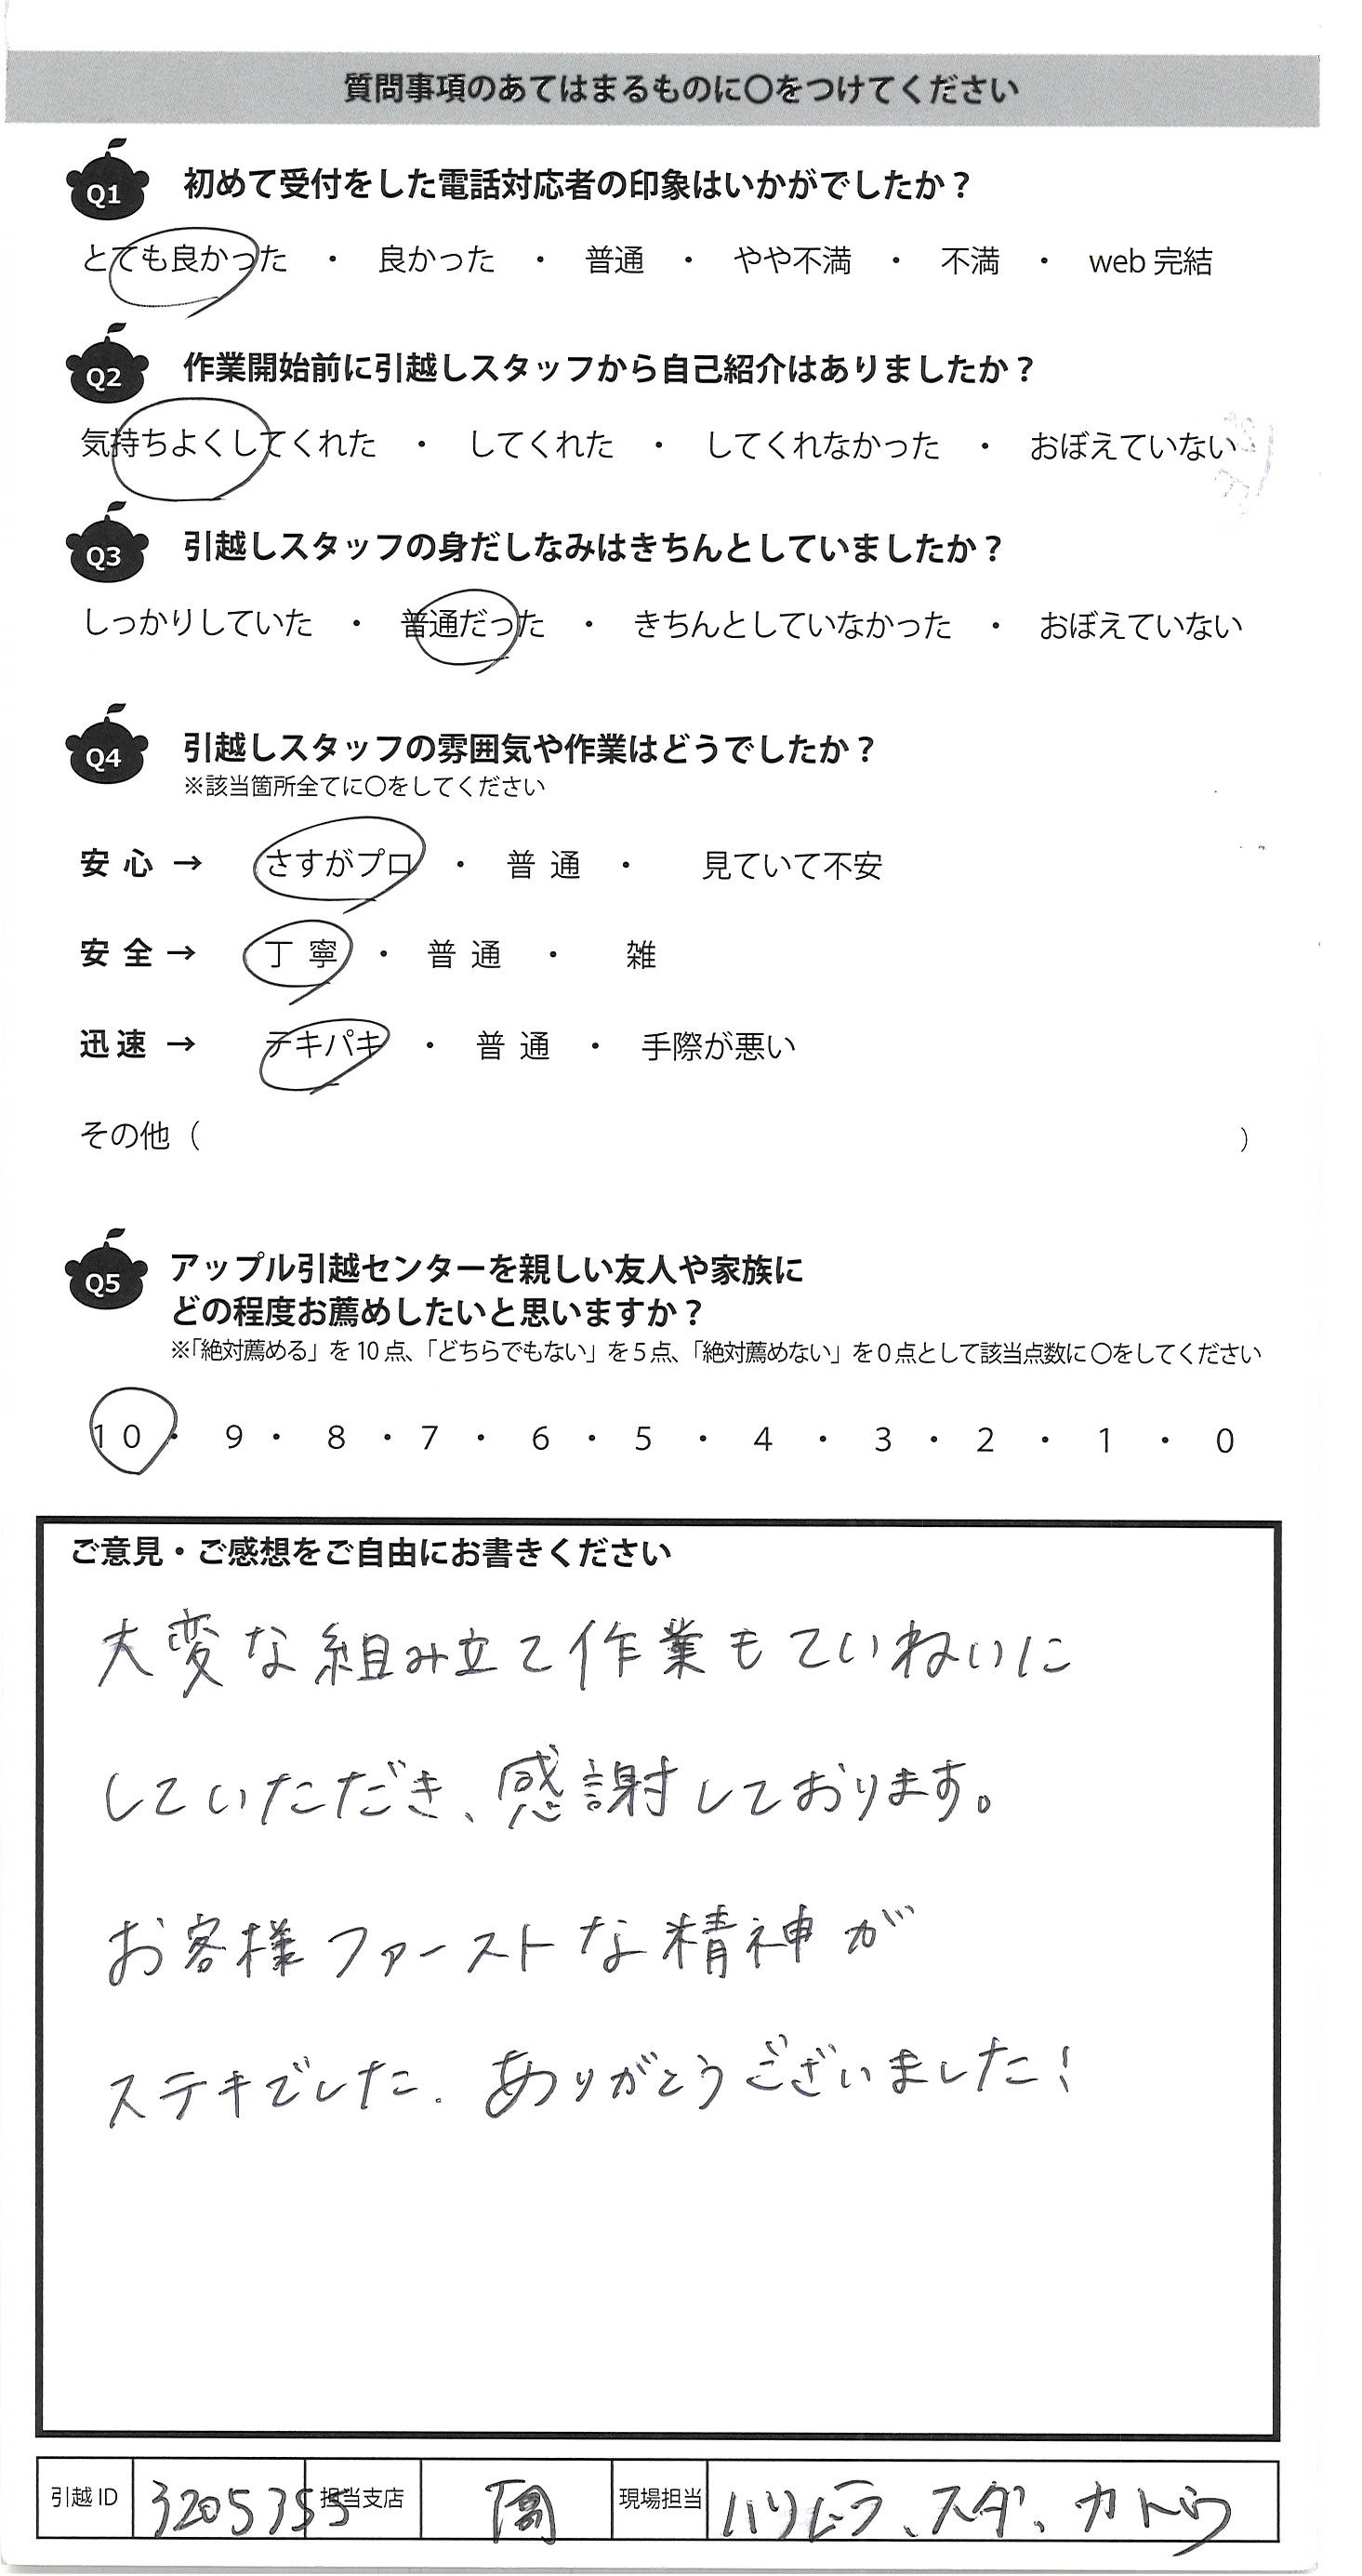 質問事項のあてはまるものに〇をつけてください
Q1 初めて受付をした電話対応者の印象はいかがでしたか？
とても良かった ・ 良かった ・ 普通 ・ やや不満 ・ 不満 ・ web 完結
Q2 作業開始前に引越しスタッフから自己紹介はありましたか？
気持ちよくしてくれた ・ してくれた ・ してくれなかった ・ おぼえていない
Q3 引越しスタッフの身だしなみはきちんとしていましたか？
しっかりしていた ・ 普通だった ・ きちんとしていなかった ・ おぼえていない
Q4 引越しスタッフの雰囲気や作業はどうでしたか？
※該当箇所全てに〇をしてください
安心 → さすがプロ ・ 普通 ・ 見ていて不安
安全 → 丁寧 ・ 普通 ・ 雑
迅速 → テキパキ ・ 普通 ・ 手際が悪い
その他（ ）
Q5 アップル引越センターを親しい友人や家族に
どの程度お薦めしたいと思いますか？
※「絶対薦める」を 10 点、「どちらでもない」を 5 点、「絶対薦めない」を 0 点として該当点数に〇をしてください
10 ・ 9 ・ 8 ・ 7 ・ 6 ・ 5 ・ 4 ・ 3 ・ 2 ・ 1 ・ 0
ご意見・ご感想をご自由にお書きください
大変な組み立て作業もていねいに
していただき、感謝しております。
お客様ファーストな精神が
ステキでした. ありがとうございました！
引越 ID 3205355 担当支店 現場担当 スダ、カトウ